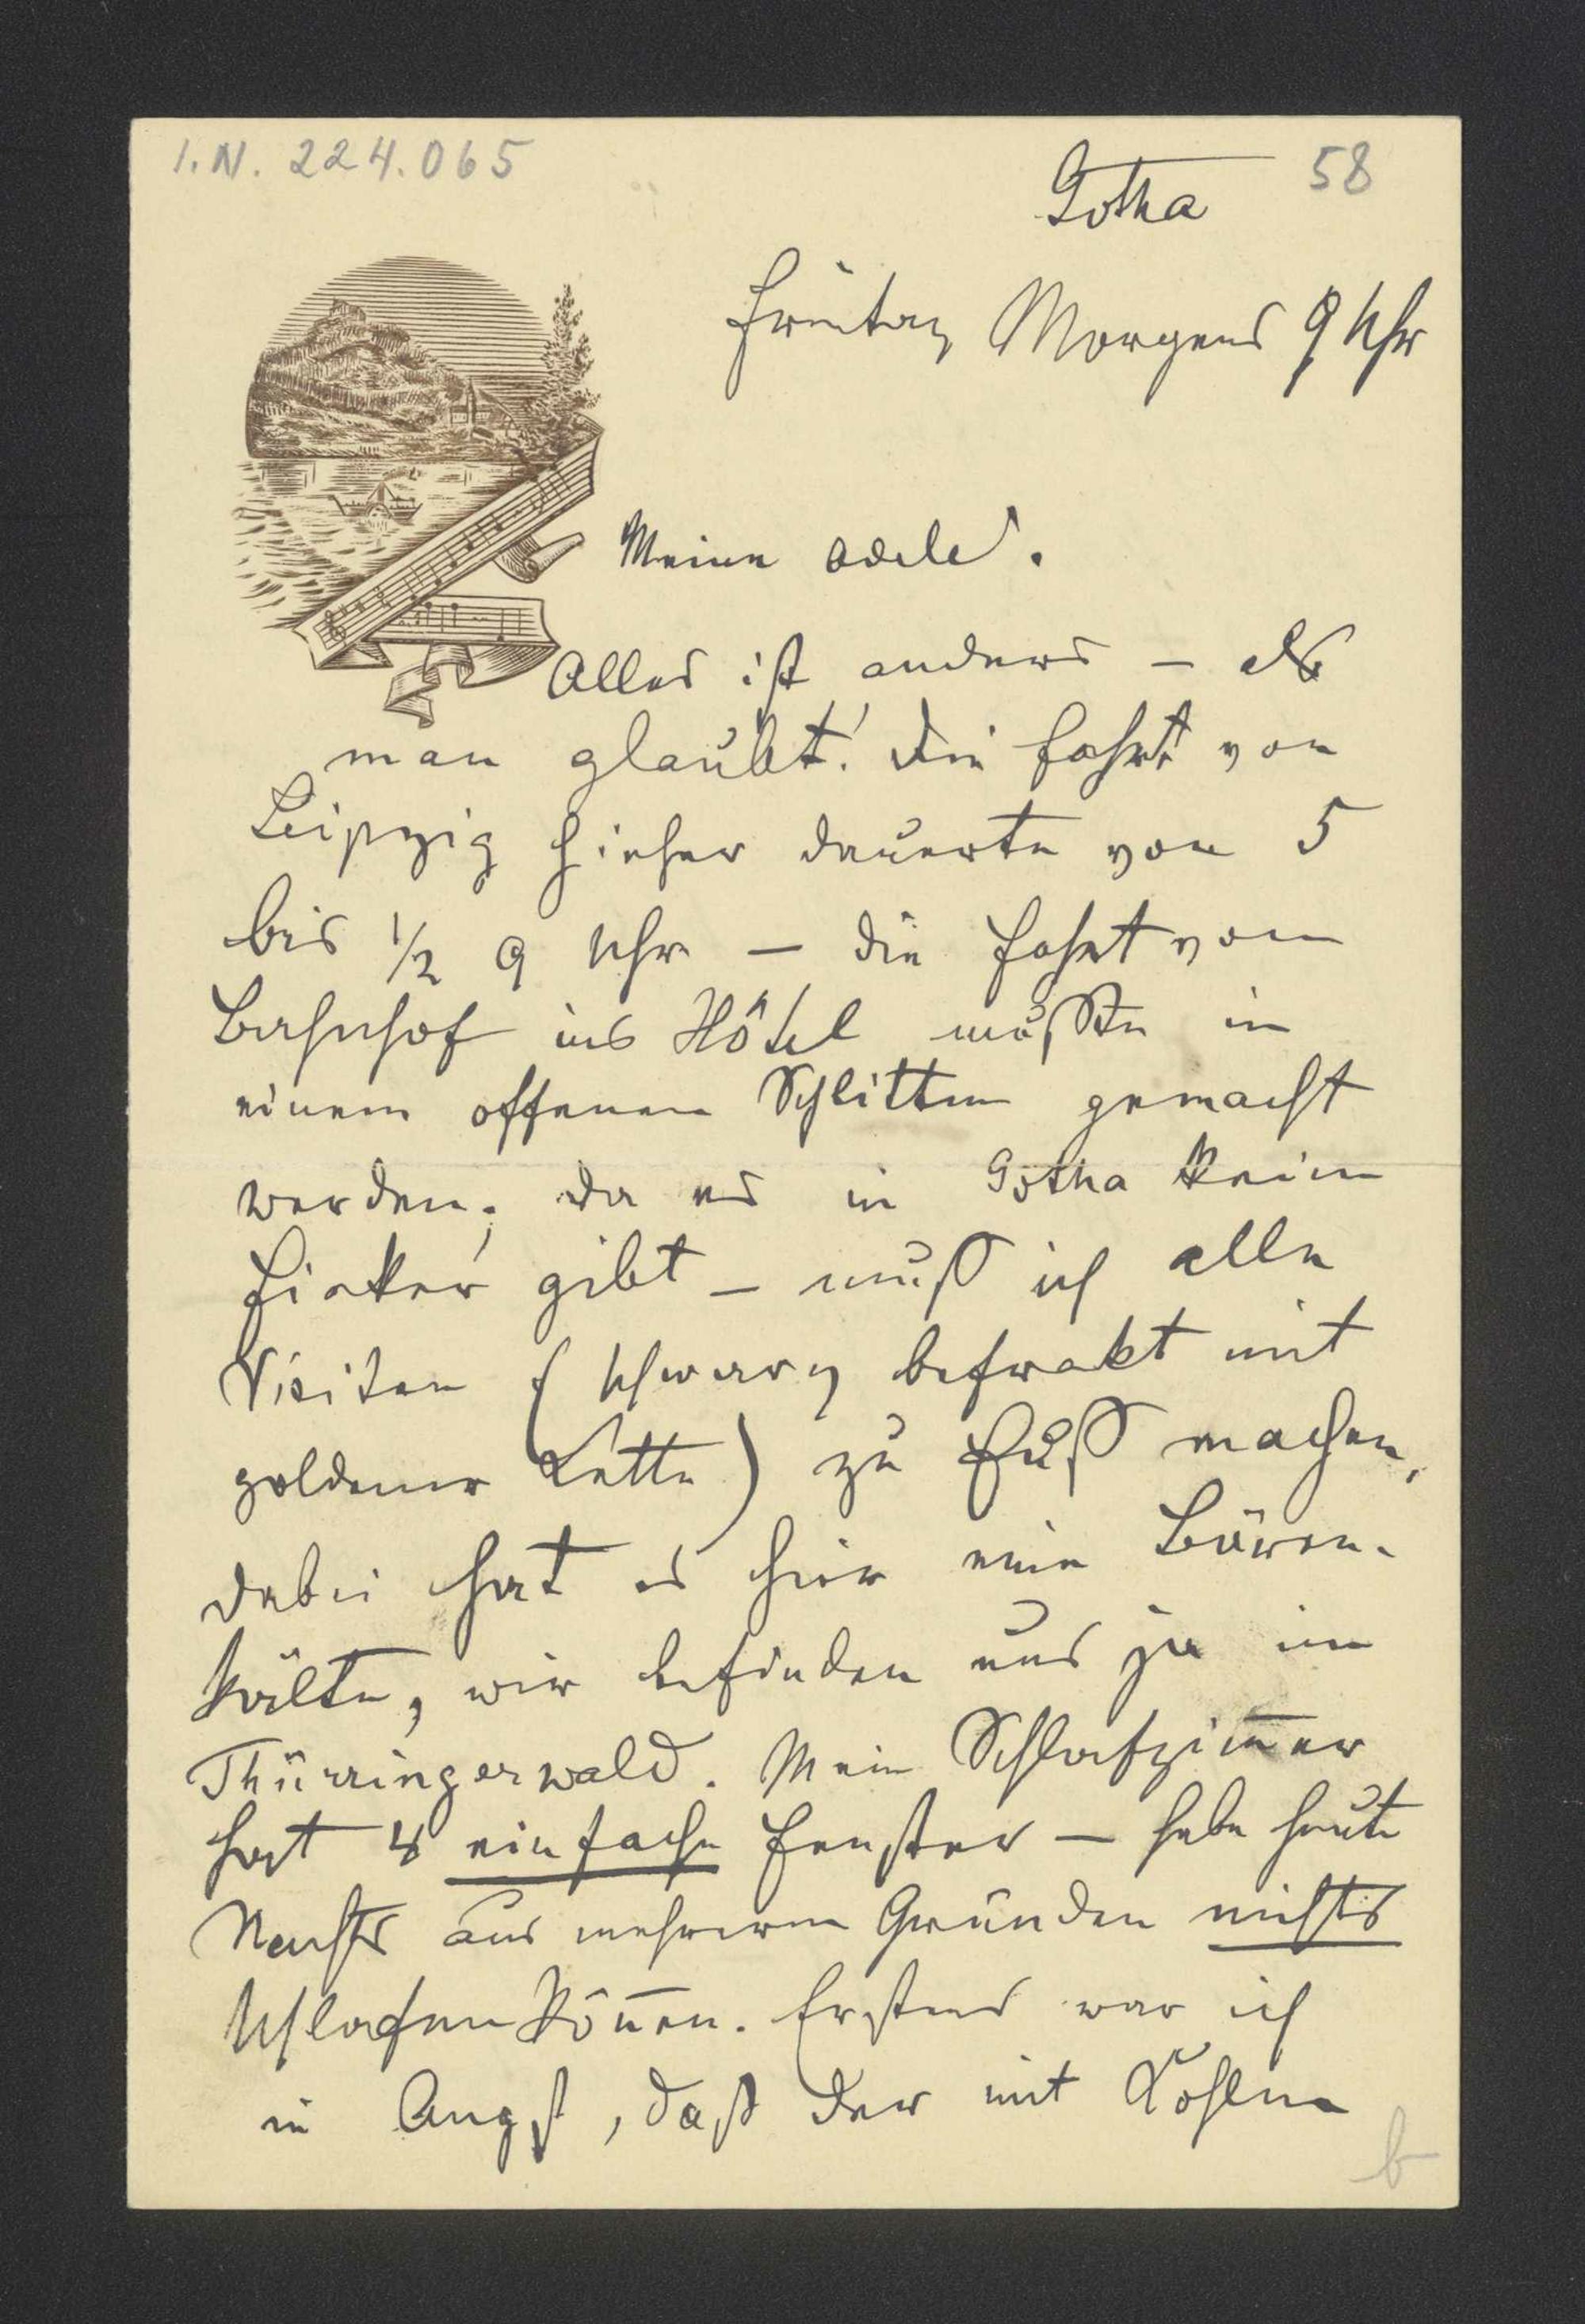 I.N. 224.065
58
Gotha
Freitag Morgens 9 Uhr
Meine Adele.
Alles ist anders – als
man glaubt! Die Fahrt von
Leipzig hieher dauerte von 5
bis ½ 9 Uhr – die Fahrt vom
Bahnhof ins Hôtel mußte in
einem offenen Schlitten gemacht
werden; da es in Gotha keine
Fiaker gibt – muß ich alle
Visiten (schwarz befrakt mit
goldener Kette) zu Fuß machen,
dabei hat es hier eine Bären-
kälte, wir befinden uns ja im
Thürringerwald. Mein Schlafzim̅er
hat 4 einfache Fenster – habe heute
Nachts aus mehreren Gründen nichts
schlafen kön̅en. Erstens war ich
in Angst, daß der mit Kohlen
b